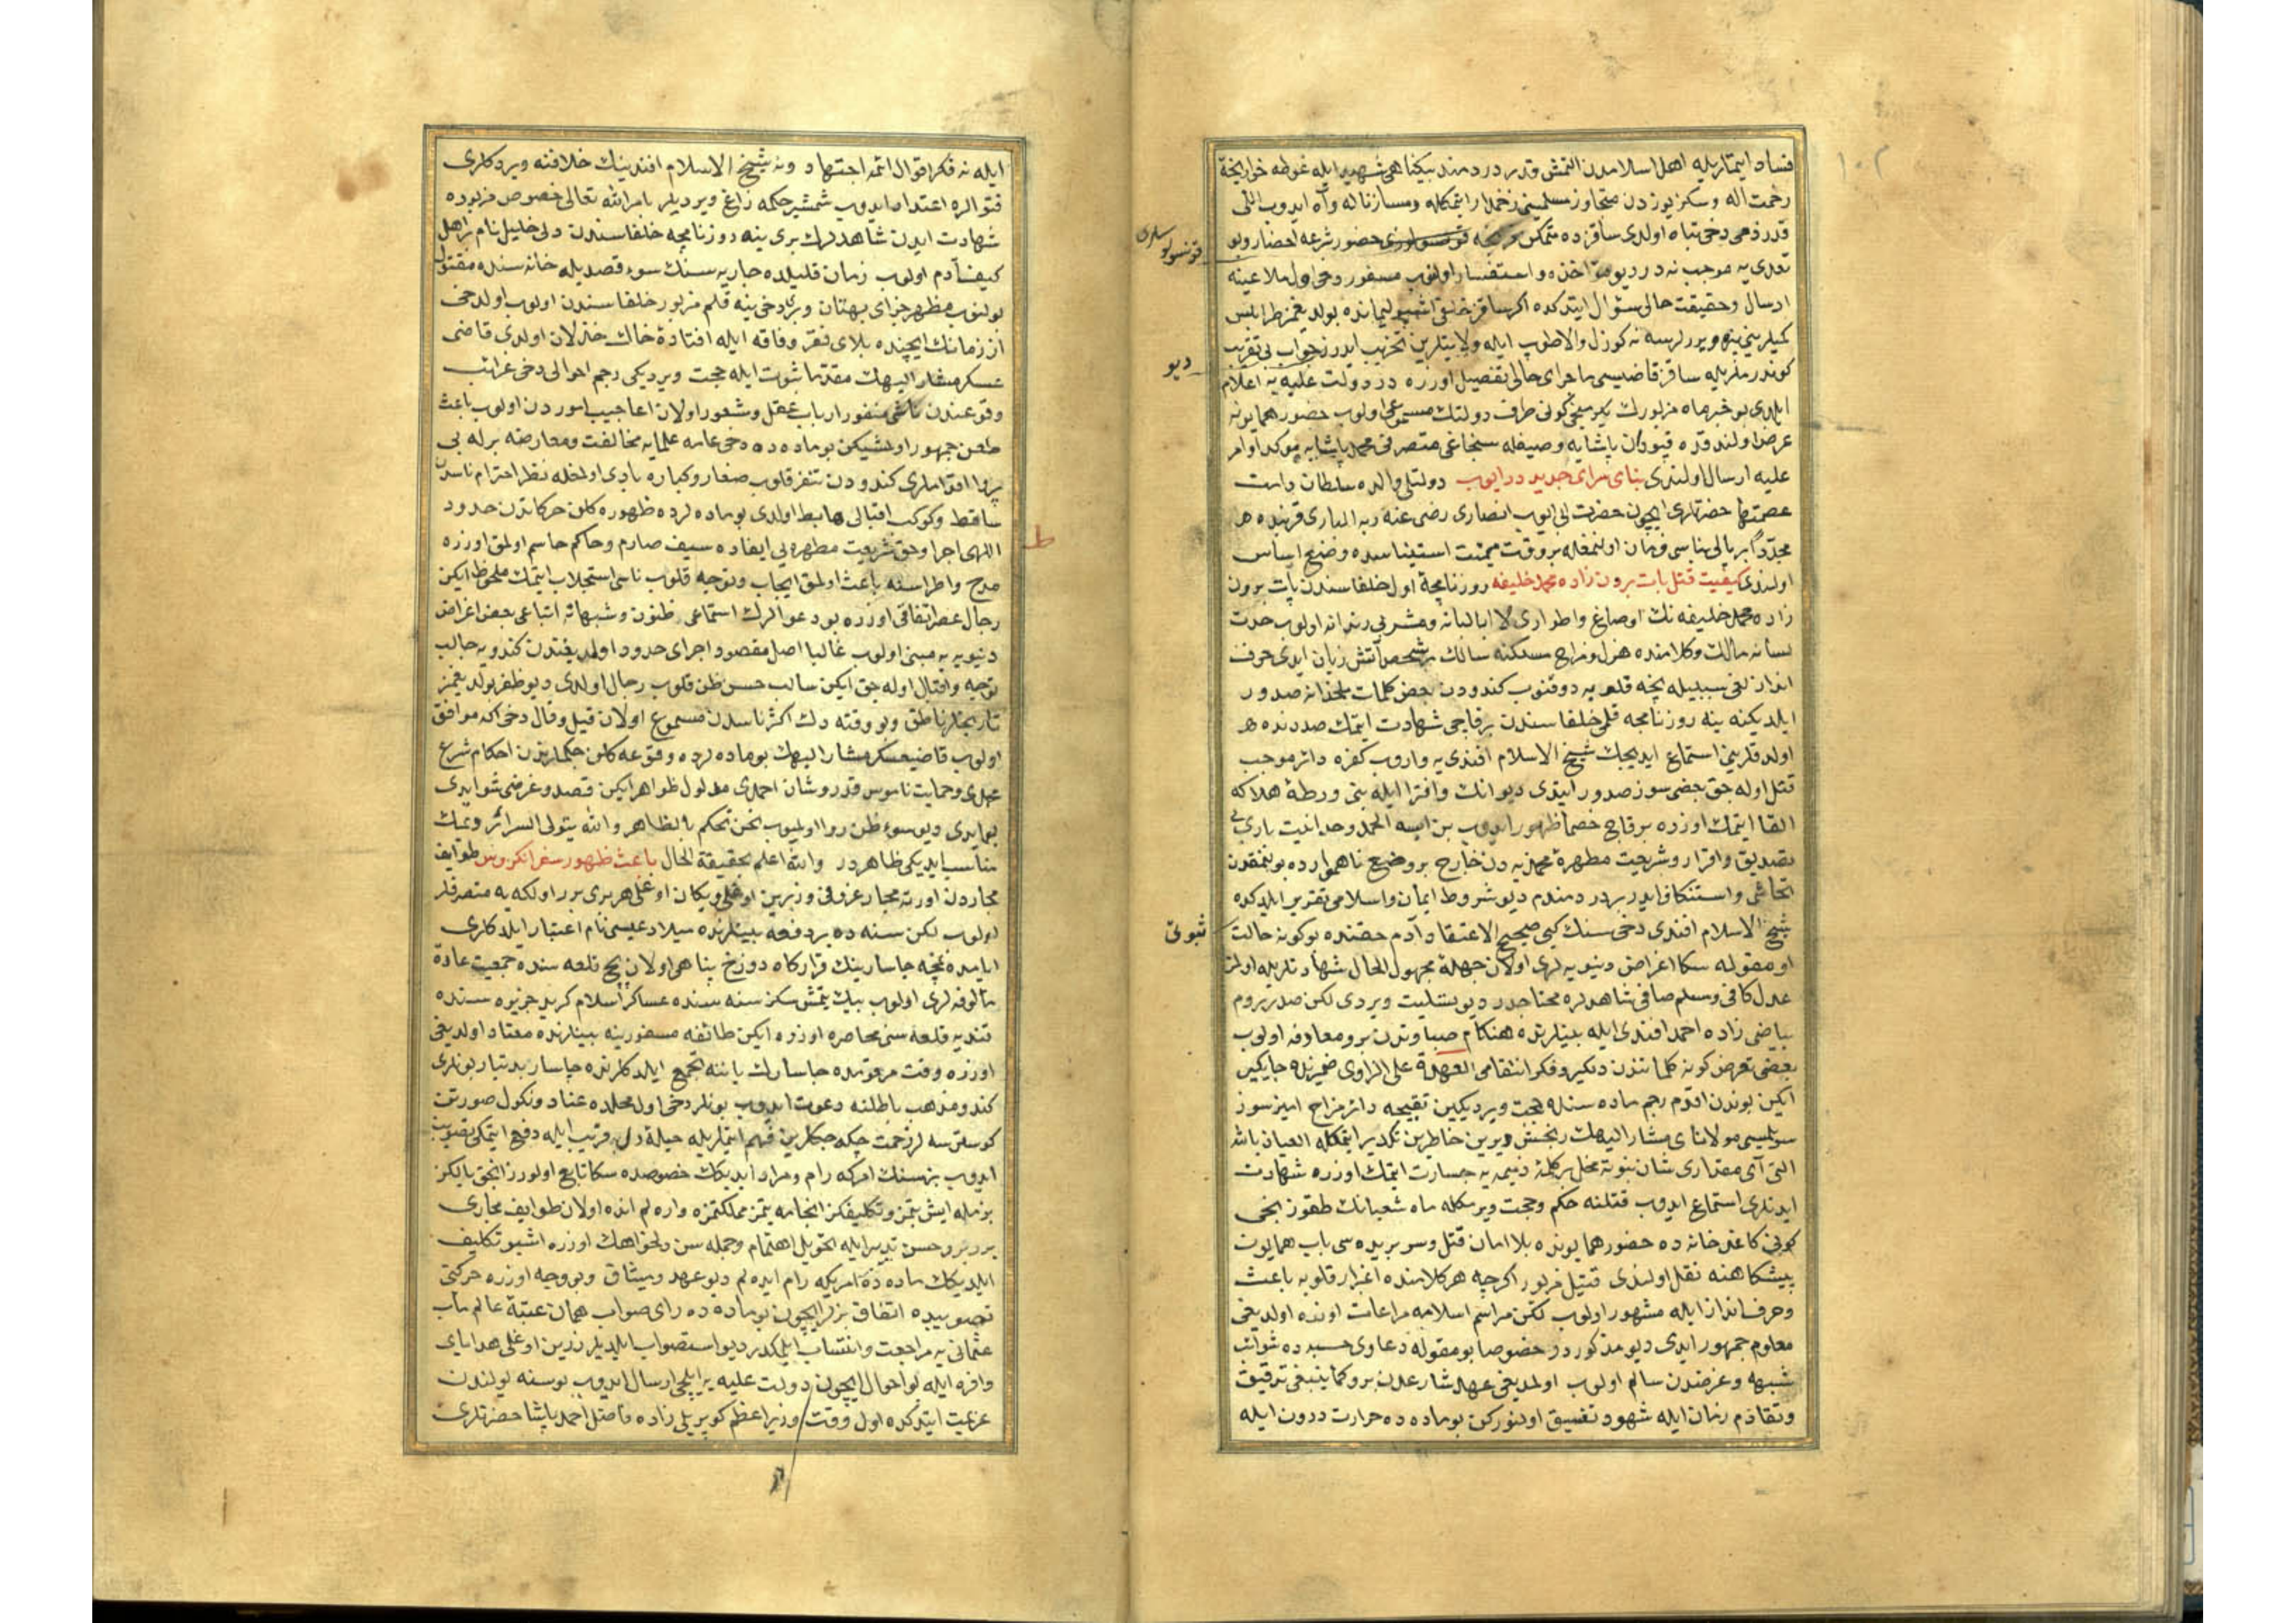 ١٠٢
فساد ايتملريله اهل اسلامدن التمش قدر دردمند بيكناهى شهيد ايله غوطه خوار لجۀ
رحمت اله و سكز يوزدن متجاوز مسلمينى زخمدار ايتمكله ومساز ناله وآه ايدوب اللى
قدر ذمى دخى تباه اولدى ساقزده متمكن فرنجه قونسولوسلرى حضور شرعه احضار وبو
تعدى يه موجب نه در ديو مؤاخذه و استفسار اولنوب مسفور دخى اول ملاعينه
ارسال وحقيقت حالى سؤال ايتدكده اكر ساقز خلقى اشبو ليمانده بولديغمز طرابلس
كميلرينى بزه ويررلرسه نه كوزل والا طوپ ايله ولايتلرين تخريب ايدرز جواب بى تقريب
كوندرملريله ساقز قاضيسى ماجراى حالى تفصيل اوزره در دولت عليه يه اعلام
ايلدى بو خبر ماه مزبورك يكرمنجى كونى طرف دولتك مسموعى اولوب حضور همايونه
عرض اولندقده قپودان پاشايه وصيغله سنجاغى متصرفى محمد پاشايه مؤكد اوامر
عليه ارسال اولندى بناى سراى جديد در ايوب دولتلو والده سلطان دامت
عصمتها حضرتلرى ايچون حضرت ابى ايوب انصارى رضى عنه ربه البارى قربنده
مجدداً بر يالى بناسى فرمان اولنمغله بر وقت ميمنت استيناسده وضع اساس
اولندى كيفيت قتل پات برون زاده محمد خليفه روزنامچۀ اول خلفاسندن پات برون
زاده محمد خليفه نك اوضاع واطوارى لا اباليانه ومشربى رندانه اولوب حدت
لسانه مالك وكلامنده هزل ومزاح مسلكنه سالك بر شخص آتش زبان ايدى حرف
اندازلغى سببيله نجه قلوبه دوقنوب كندودن بعض كلمات ملحدانه صدور
ايلديكنه ينه روزنامچه قلمى خلفاسندن بر قاچى شهادت ايتمك صددنده
اولدقلرينى استماع ايديجك شيخ الاسلام افندى يه واروب كفره دائر موجب
قتل اوله جق بعض سوز صدور ايتدى ديو انك وافترا ايله بنى ورطۀ هلاكه
القا ايتمك اوزره بر قاچ خصما ظهور ايدوب بن ايسه الحمد وحدانيت بارى يى
تصديق واقرار وشريعت مطهرۀ محمديه دن خارج بر وضع ناهموارده بولنمقدن
تحاشى واستنكاف ايدر بر دردمندم ديو شروط ايمان واسلامى تقرير ايلدكده
شيخ الاسلام افندى دخى سنك كبى صحيح الاعتقاد آدم حقنده بو كونه حالت ثبوتى
او مقوله سكا اغراض دنيويه لرى اولان جهلۀ مجهول الحال شهادتلريله اولمز
عدل كافى ومسلم صافى شاهدلره محتاجدر ديو تسليت ويردى لكن صدر روم
بياضى زاده احمد افندى ايله بينلرنده هنكام صباوتدن برو معادفه اولوب
بعضى تعرض كونه كلماتندن دلكير وفكر انتقامى العهدة على الراوى ضميرنده جايكير
ايكن بوندن اقدم رجم ماده سنده حجت ويرديكين تقبيحه دائر مزاح اميز سوز
سويلمسى مولاناى مشار اليهك رنجش ديرين خاطرين تكدير ايتمكله العياذ بالله
التى آى مقدارى شان نبوته مخل بر كلمۀ ذميمه يه جسارت ايتمك اوزره شهادت
ايدنلرى استماع ايدوب قتلنه حكم وحجت ويرمكله ماه شعبانك طقوزنجى
كونى كاغدخانه ده حضور همايونده بلا امان قتل وسر بريده سى باب همايون
پيشكاهنه نقل اولندى قتيل مزبور اكرچه هر كلامنده اغبرار قلوبه باعث
وحرف انداز ايله مشهور اولوب لكن مراسم اسلاميه مراعات اوزره اولديغى
معلوم جمهور ايدى ديو مذكوردر خصوصا بو مقوله دعاوى حسبه ده شوائب
شبهه وغرضدن سالم اولوب اولمديغى عهد شارعدن برو كما ينبغى تدقيق
وتقادم زمان ايله شهود تفسيق اولنوركن بو ماده ده حرارت درون ايله
قونسولوسلرى
ديو
ثبوتى
ايله نه فكر اقوال ائمه اجتهاد ونه شيخ الاسلام افندينك خلافنه ويردكلرى
فتوالره اعتداد ايدوب شمشير حكمه زاغ ويرديلر بامر الله تعالى خصوص مزبوره
شهادت ايدن شاهدلرك برى ينه روزنامچه خلفاسندن دلى خليل نام بر اهل
كيف آدم اولوب زمان قليلده جاريه سنك سوء قصديله خانه سنده مقتول
بولنوب مظهر جزاى بهتان وبرى دخى ينه قلم مزبور خلفاسندن اولوب اول دخى
از زمانك ايچنده بلاى فقر وفاقه ايله افتادۀ خاك خذلان اولدى قاضى
عسكر مشار اليهك مقدما ثبوت ايله حجت ويرديكى رجم احوالى دخى غرائب
وقوعندن ناشى منفور ارباب عقل وشعور اولان اعاجيب اموردن اولوب باعث
طعن جمهور اولمشيكن بو ماده ده دخى عامه علمايه مخالفت ومعارضه برله بى
پروا اقداملرى كندودن تنفر قلوب صغار وكباره بادى اولمغله نظر احترام ناسدن
ساقط وكوكب اقبالى هابط اولدى بو ماده لرده ظهوره كلن حركاتدن حدود
اللهى اجرا وحق شريعت مطهره يى ايفاده سيف صارم وحاكم حاسم اولمق اوزره
مدح واطراسنه باعث اولمق ايجاب وتوجه قلوب ناسى استجلاب ايتمك ملحوظ ايكن
رجال عصر اتفاقى اوزره بو دعوالرك استماعى ظنون وشبهاته اتباعى بعض اغراض
دنيويه يه مبنى اولوب غالبا اصل مقصود اجراى حدود اولمديغندن كندويه جالب
توجه واقبال اوله جق ايكن سالب حسن ظن قلوب رجال اولدى ديو ظفر بولديغمز
تاريخلر ناطق وبو وقته دك اكثر ناسدن مسموع اولان قيل وقال دخى اكه موافق
اولوب قاضيعسكر مشار اليهك بو ماده لرده وقوعه كلن حكملرندن احكام شرع
محمدى وحمايت ناموس قدر وشان احمدى مدلول ظواهر ايكن قصد وغرضى شو ايدى
بو ايدى ديو سوء ظن روا اولميوب نحن نحكم بالظاهر والله يتولى السرائر ديمك
مناسب ايديكى ظاهردر والله اعلم بحقيقة الحال باعث ظهور سفر انكروس طوايف
مجاردن اورته مجار غروفى وزرين اوغلى وبكان اوغلى هر برى برر اولكه يه متصرفلر
اولوب لكن سنه ده بر دفعه بينلرنده ميلاد عيسى نام اعتبار ايلدكلرى
ايامده نمچه چاسارينك قراركاه دوزخ پناهى اولان بچ قلعه سنده جمعيت عادة
مألوفه لرى اولوب بيك يتمش سكز سنه سنده عساكر اسلام كريد جزيره سنده
قنديه قلعه سنى محاصره اوزره ايكن طائفه مسفورينه بينلرنده معتاد اولديغى
اوزره وقت مرقومده چاسارك ياننه تجمع ايلدكلرنده چاسار بدتبار بونلرى
كندو مذهب باطلنه دعوت ايدوب بونلر دخى اول محلده عناد ونكول صورتن
كوسترسه لر زحمت چكه جكلرين فهم ايتملريله حيلۀ دلفريب ايله دفع ايتمكى تصويب
ايدوب بز سنك امركه رام ومراد ايديكك خصوصده سكا تابع اولورز انجق يالكز
بزمله ايش بتمز وتكليفكز انجامه يتمز مملكتمزه واره لم انده اولان طوايف مجارى
برر برر حسن تدبير ايله تحويل اهتمام وجمله سن دلخواهك اوزره اشبو تكليف
ايلديكك ماده ده امريكه رام ايده لم ديو عهد وميثاق وبو وجه اوزره حركتى
تصويبده اتفاق بزلر ايچون بو ماده ده راى صواب همان عتبۀ عالم مآب
عثمانى يه مراجعت وانتساب ايلمكدر ديو استصواب ايلديلر زرين اوغلى هداياى
وافره ايله بو احوال ايچون دولت عليه يه ايلچى ارسال ايدوب بوسنه يولندن
عزيمت ايتدكده اول وقت وزير اعظم كوپريلى زاده فاضل احمد پاشا حضرتلرى
ط